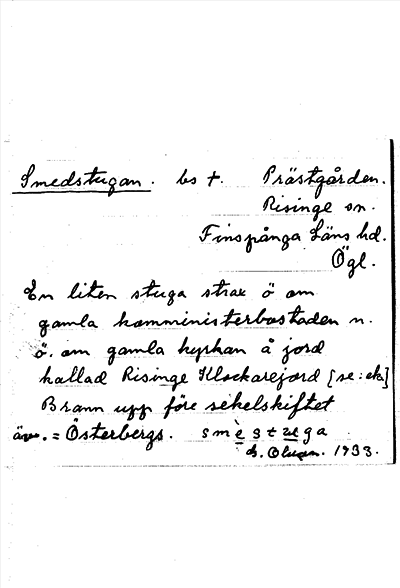 Smedstugan. bs †. Prästgården.
Risinge sn.
Finspånga Läns hd.
Ögl.
En liten stuga strax ö om
gamla komministerbostaden n.
ö. om gamla kyrkan å jord
kallad Risinge Klockarejord [se: ek]
Brann upp före sekelskiftet
äv. = Österbergs. smèstuga
1933.